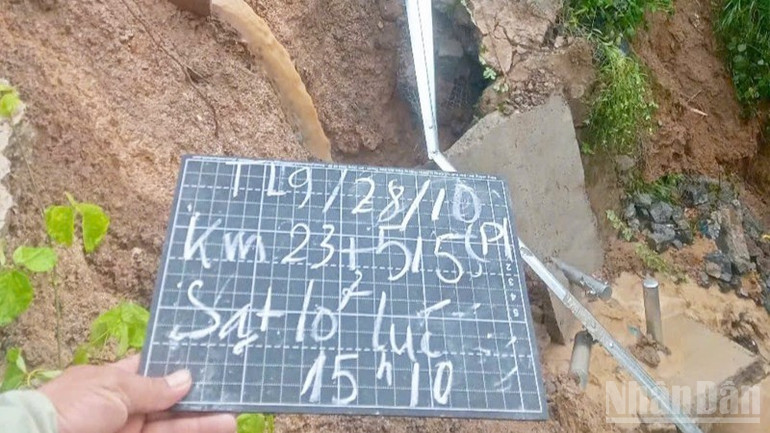 TL9/28/10
Km 23+515(P)
Sạt lở lúc
15h10
NhânDân